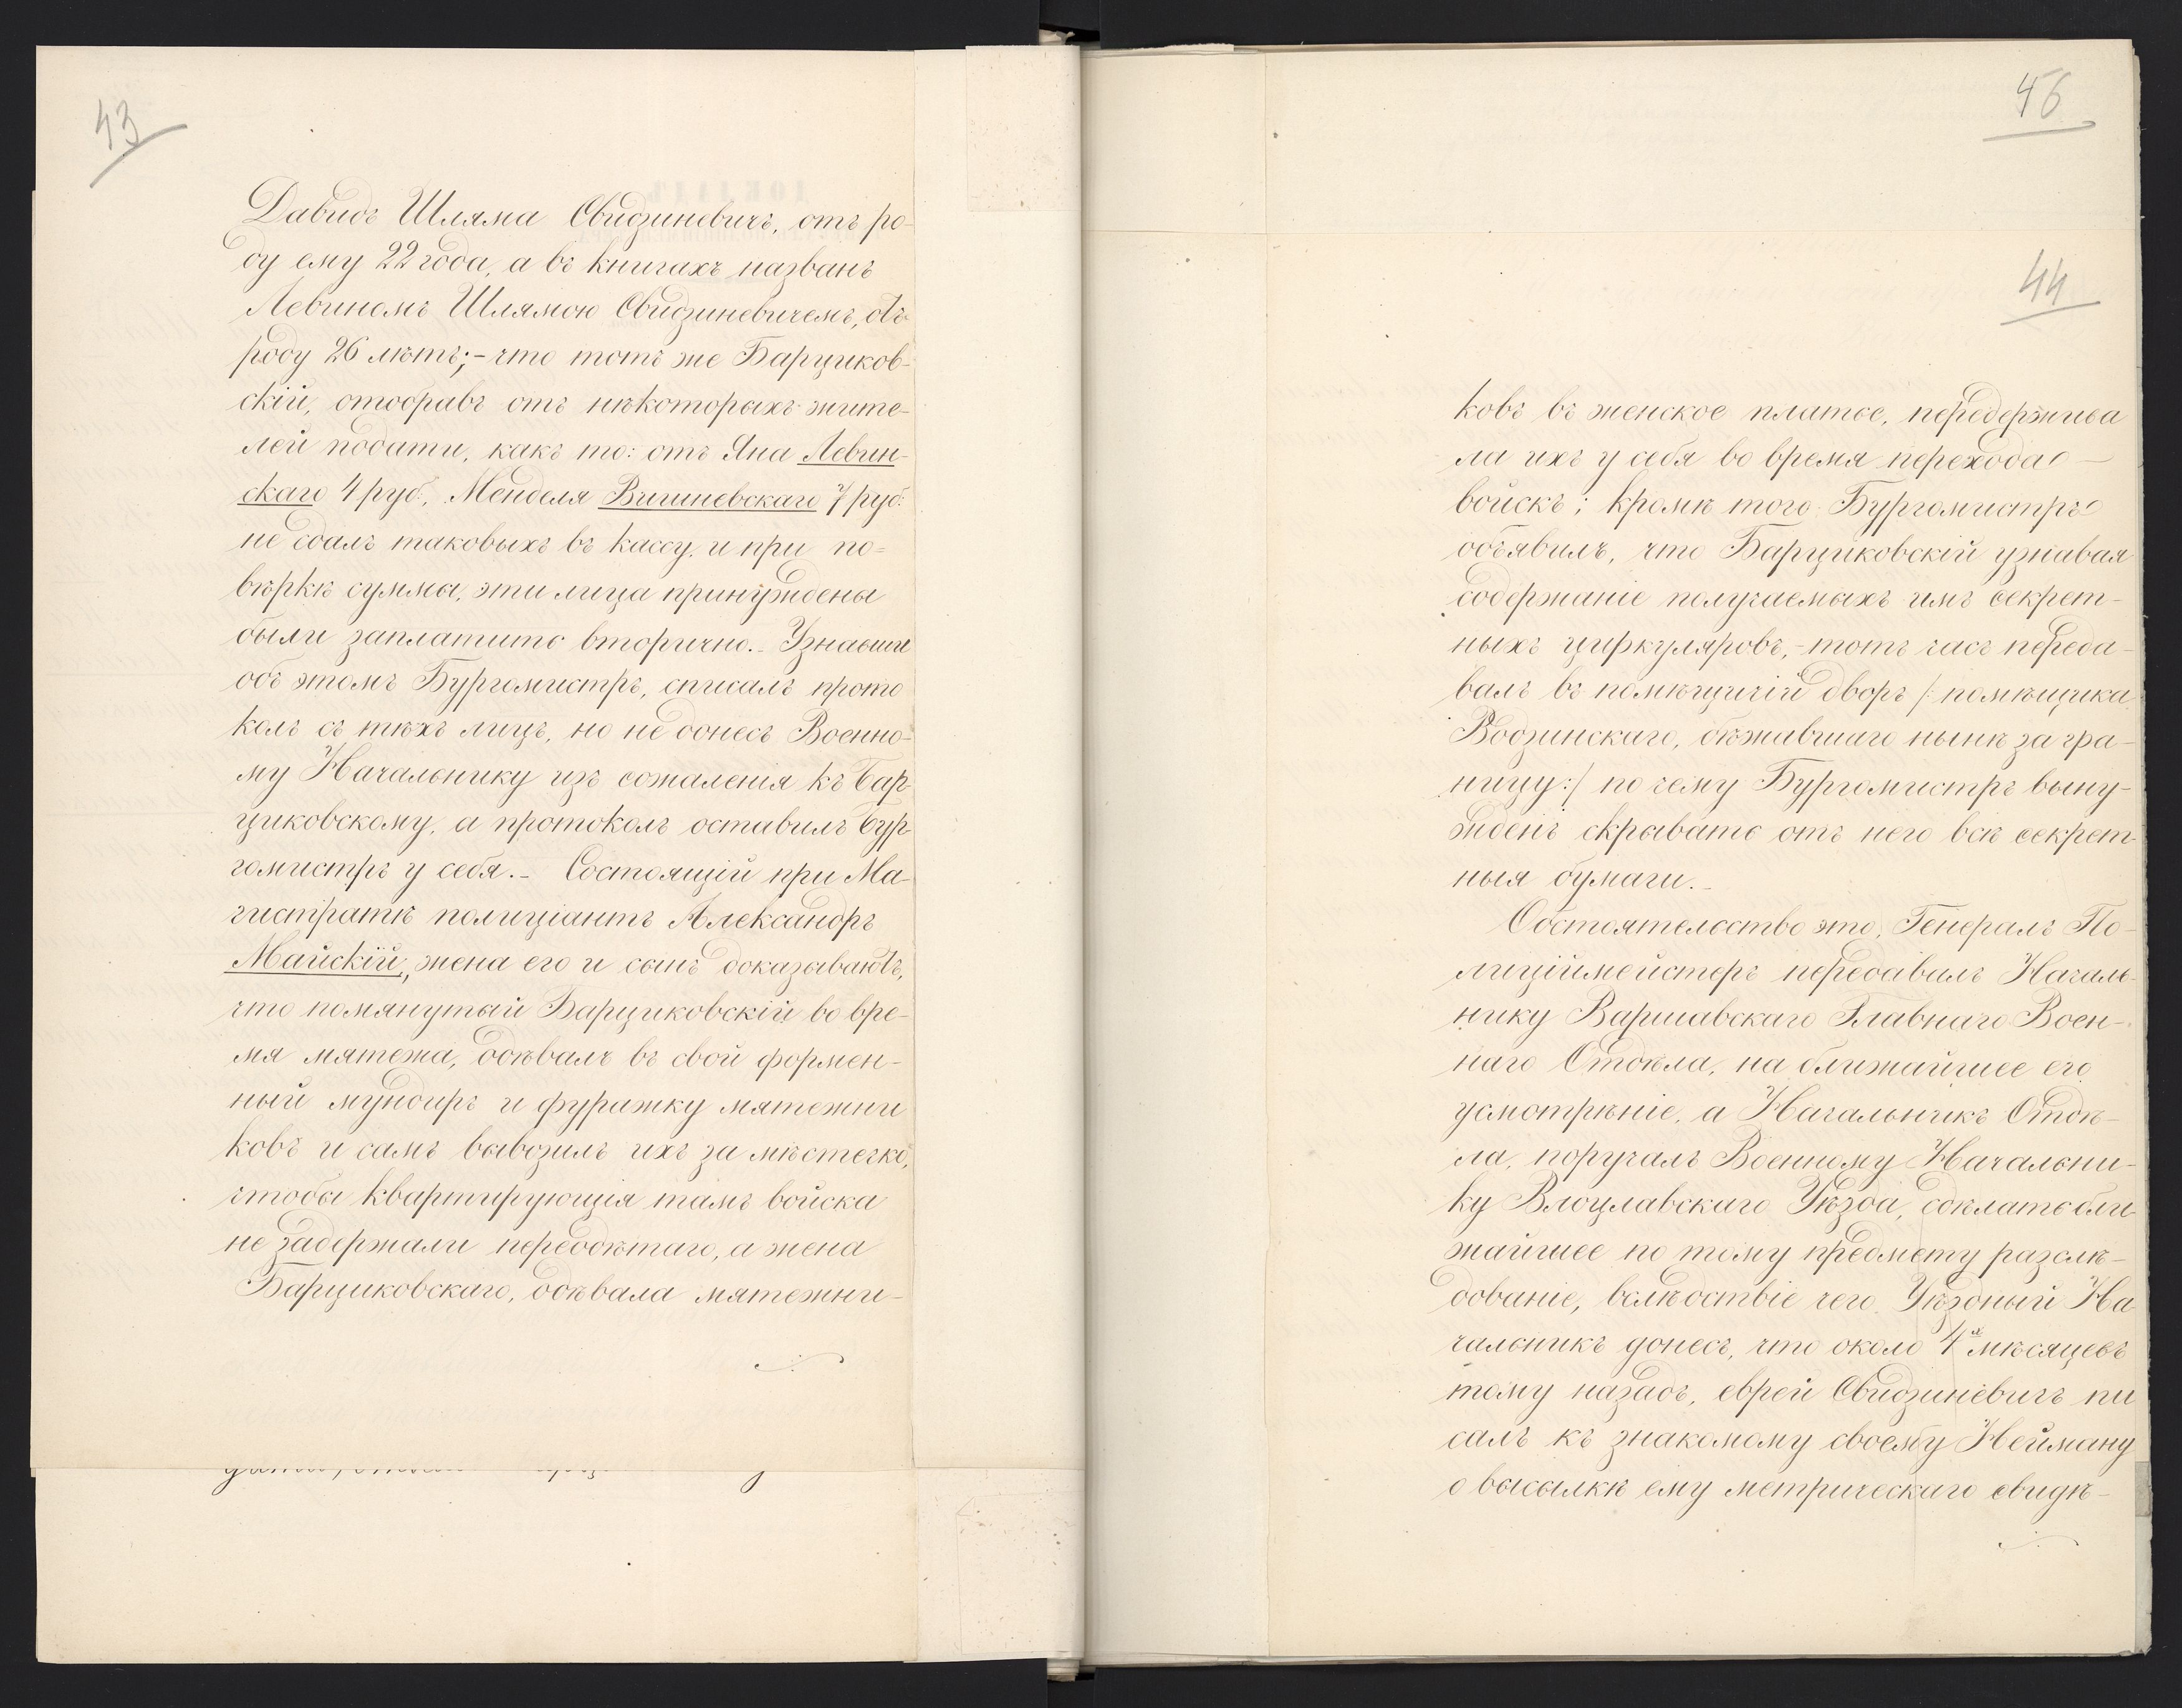 43
Давидъ Шляма Свидзиневичъ, отъ ро-
ду ему 22 года, а въ книгахъ названъ
Левиномъ Шлямою Свидзиневичемъ, отъ
роду 26 лѣтъ;- что тотъ же Барциков-
скій, отобравъ отъ нѣкоторыхъ жите-
лей подати, какъ то: отъ Яна Левин-
скаго 4 руб., Менделя Вишневскаго 7 руб:
не сдалъ таковыхъ въ кассу, и при по=
вѣркѣ суммы, эти лица принуждены
были заплатить вторично.- Узнавши
объ этомъ Бургомистръ, списалъ прото
колъ съ тѣхъ лицъ, но не донесъ Военно-
му Начальнику изъ сожаленія къ Бар-
циковскому, а протоколъ оставилъ Бур-
гомистръ у себя.- Состоящій при Ма-
гистратѣ полиціантъ Александръ
Майскій, жена его и сынъ доказываютъ,
что помянутый Барциковскій во вре-
мя мятежа, одѣвалъ въ свой формен-
ный мундиръ и фуражку мятежни
ковъ и самъ вывозилъ ихъ за мѣстечко,
чтобы квартирующія тамъ войска
не задержали переодѣтаго, а жена
Барциковскаго, одѣвала мятежни-
46
44
ковъ въ женское платье, передержива
ла ихъ у себя во время перехода
войскъ; кромѣ того Бургомистръ
объявилъ, что Барциковскій узнавая
содержаніе получаемыхъ имъ секрет-
ныхъ циркуляровъ,- тотъ часъ переда-
валъ въ помѣщичій дворъ /: помѣщика
Водзинскаго, бѣжавшаго нынѣ за гра-
ницу:/ по чему Бургомистръ выну-
жденъ скрывать отъ него всѣ секрет-
ныя бумаги.-
Обстоятельство это, Генералъ По-
лиціймейстеръ передавалъ Началь-
нику Варшавскаго Главнаго Воен-
наго Отдѣла, на ближайшее его
усмотрѣніе, а Начальникъ Отдѣ-
ла, поручалъ Военному Начальни-
ку Влоцлавскаго Уѣзда, сдѣлать бли-
жайшее по тому предмету разслѣ-
дованіе, вслѣдствіе чего Уѣздный На
чальникъ донесъ, что около 4х мѣсяцевъ
тому назадъ, еврей Свидзиневичъ пи
салъ къ знакомому своему Нейману
о высылкѣ ему метрическаго свидѣ-